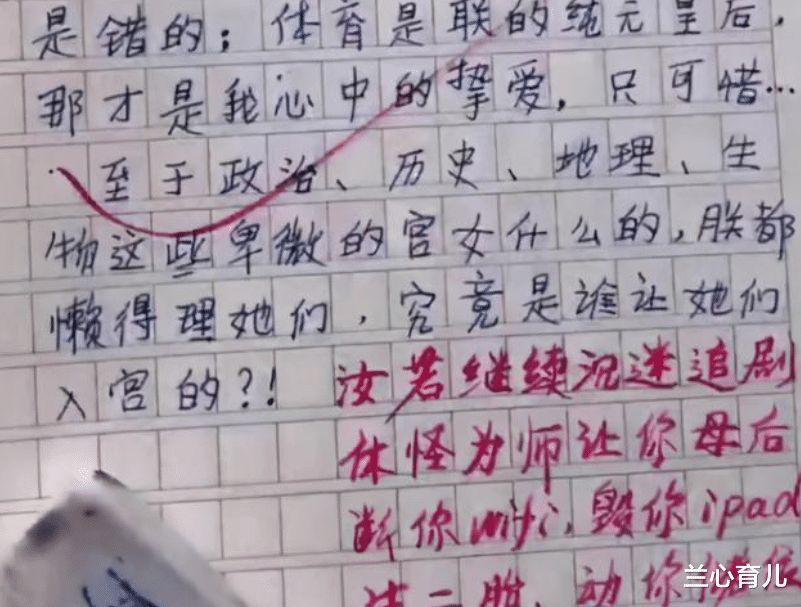 是错的；体育是联的纯元皇后，
那才是我心中的挚爱，只可惜…
至于政治、历史、地理、生
物这些卑微的宫女什么的，朕都
懒得理她们，究竟是谁让她们
入宫的？！
汝若继续沉迷追剧
休怪为师让你母后
断你wifi，毁你ipad
二胎，动你
兰心育儿